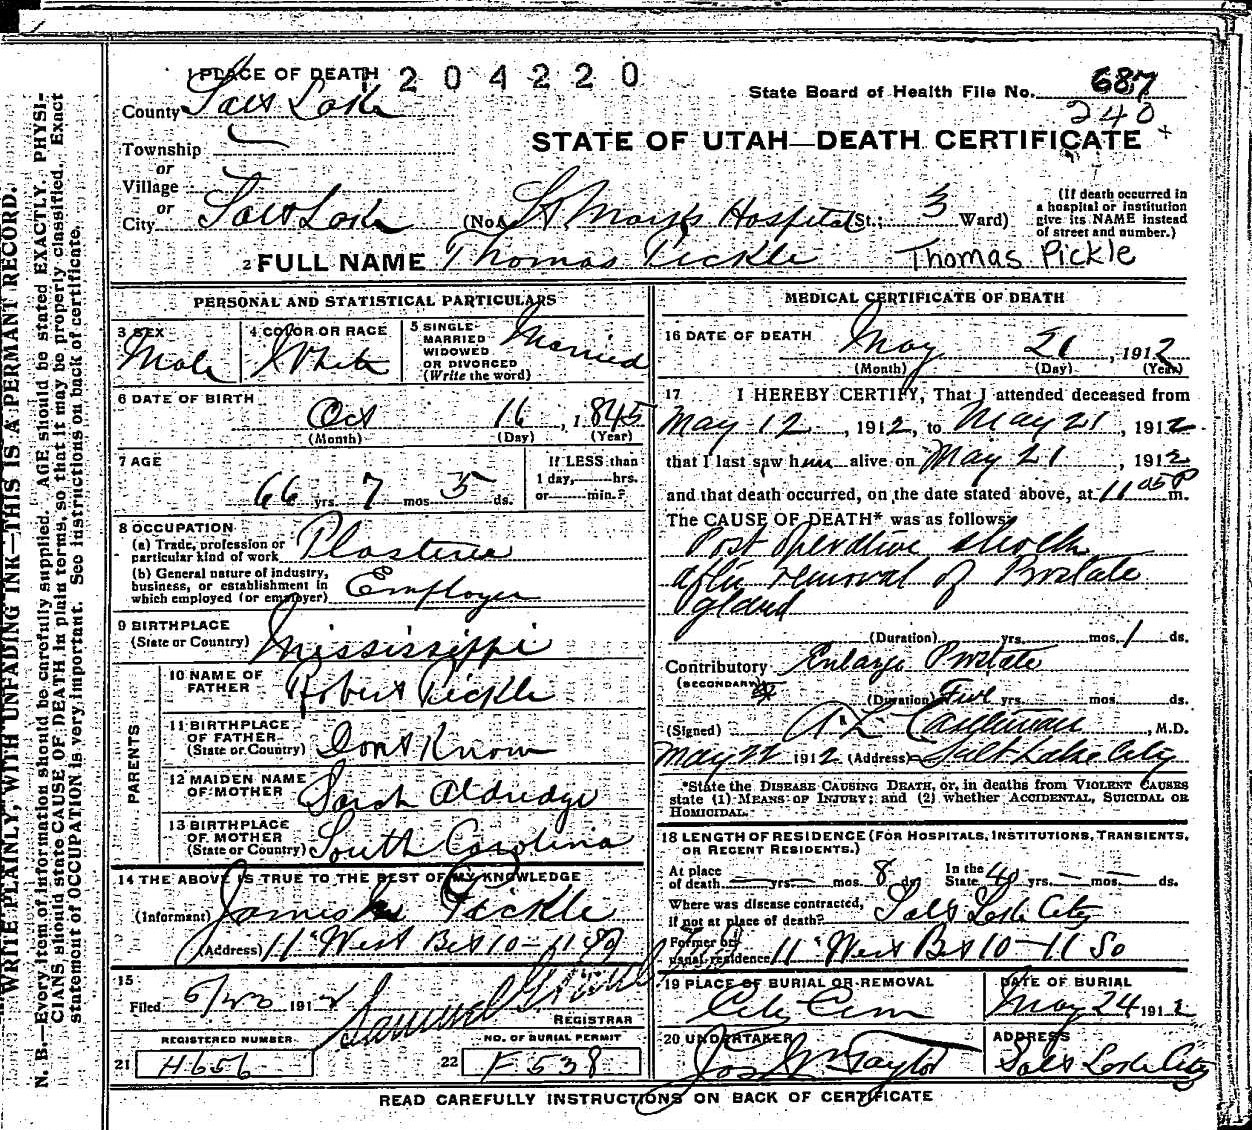 1 PLACE OF DEATH 1204220
State Board of Health File No. 687
240
County Salt Lake
STATE OF UTAH—DEATH CERTIFICATE
Township
or
Village
or
City Salt Lake (No. St Marks Hospital St.; 3 Ward)
(If death occurred in a hospital or institution give its NAME instead of street and number.)
2 FULL NAME Thomas Pickle Thomas Pickle
PERSONAL AND STATISTICAL PARTICULARS
3 SEX Male
4 COLOR OR RACE White
5 SINGLE MARRIED WIDOWED OR DIVORCED (Write the word) Married
6 DATE OF BIRTH
Oct 16, 1845
(Month) (Day) (Year)
7 AGE
66 yrs. 7 mos 5 ds.
If LESS than 1 day, hrs. or min.?
8 OCCUPATION
(a) Trade, profession or particular kind of work Plasterer
(b) General nature of industry, business, or establishment in which employed (or employer) Employer
9 BIRTHPLACE
(State or Country) Mississippi
PARENTS
10 NAME OF FATHER Robert Pickle
11 BIRTHPLACE OF FATHER (State or Country) Dont Know
12 MAIDEN NAME OF MOTHER Sarah Aldredge
13 BIRTHPLACE OF MOTHER (State or Country) South Carolina
14 THE ABOVE IS TRUE TO THE BEST OF MY KNOWLEDGE
(Informant) James Pickle
(Address) 11 West Bet 10-11 So
15
Filed 5/23 1912 Samuel G.
REGISTRAR
REGISTERED NUMBER
21 H656
NO. OF BURIAL PERMIT
22 F 538
MEDICAL CERTIFICATE OF DEATH
16 DATE OF DEATH May 21, 1912
(Month) (Day) (Year)
17 I HEREBY CERTIFY, That I attended deceased from
May 12, 1912, to May 21, 1912
that I last saw him alive on May 21, 1912
and that death occurred, on the date stated above, at 11 05 P m.
The CAUSE OF DEATH* was as follows:
Post operative shock
after removal of Prostate
gland
(Duration) yrs. mos. 1 ds.
Contributory Enlarge Prostate
(SECONDARY)
(Duration) Five yrs. mos. ds.
(Signed) , M.D.
May 22 1912 (Address) Salt Lake City
*State the DISEASE CAUSING DEATH, or, in deaths from VIOLENT CAUSES
state (1) MEANS OF INJURY; and (2) whether ACCIDENTAL, SUICIDAL OR
HOMICIDAL.
18 LENGTH OF RESIDENCE (FOR HOSPITALS, INSTITUTIONS, TRANSIENTS,
OR RECENT RESIDENTS.)
At place of death — yrs. — mos. 8 ds. In the State 40 yrs. — mos. — ds.
Where was disease contracted, if not at place of death? Salt Lake City
Former or usual residence 11 West Bet 10-11 So
19 PLACE OF BURIAL OR REMOVAL City Cem
DATE OF BURIAL May 24 1912
20 UNDERTAKER Jos Wm Taylor
ADDRESS Salt Lake City
READ CAREFULLY INSTRUCTIONS ON BACK OF CERTIFICATE
WRITE PLAINLY, WITH UNFADING INK—THIS IS A PERMANT RECORD.
N. B.—Every item of information should be carefully supplied. AGE should be stated EXACTLY. PHYSI-
CIANS should state CAUSE OF DEATH in plain terms, so that it may be properly classified. Exact
statement of OCCUPATION is very important. See instructions on back of certificate.